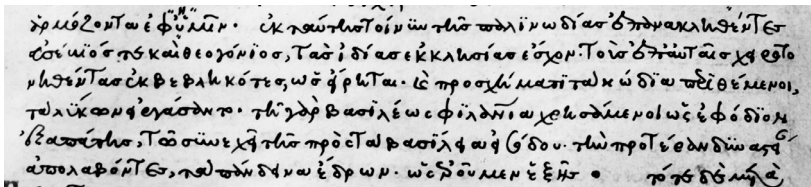 ἁρμόζοντα ἔφημεν. ἐκ ταύτης τοίνυν τῆς παλινωδίας ἐπανακληθέντες
εὐσέβιός τε καὶ θεογόνιος, τὰς ἰδίας ἐκκλησίας ἔσχον. τοὺς ἐπ' αὐταῖς χειροτο
νηθέντας ἐκβεβληκότες, ὡς εἴρηται. καὶ προσχήματι τῶ κωδίω περιθέμενοι,
τὰ λύκων εἰργάσαντο. τῇ γὰρ βασιλέως φιλανθρωπία χρησάμενοι ὡς ἐφοδίω
ἐξαπάτης, τῶ συνεχεῖ τῆς πρὸς τὸν βασιλέα εἰσόδου. τὴν προτέραν
ἀπολαβόντες, τὰ πάνδεινα ἔδρων. ὡς ἐροῦμεν ἑξῆς. τότε δὲ